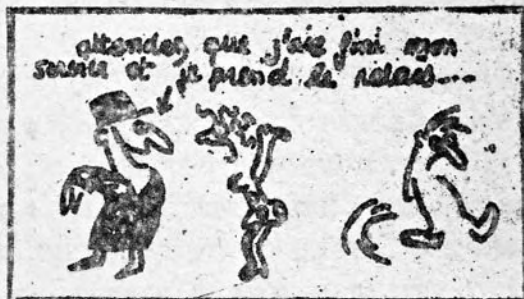 attendez que j'aie fini mon
service et je prend le relais....